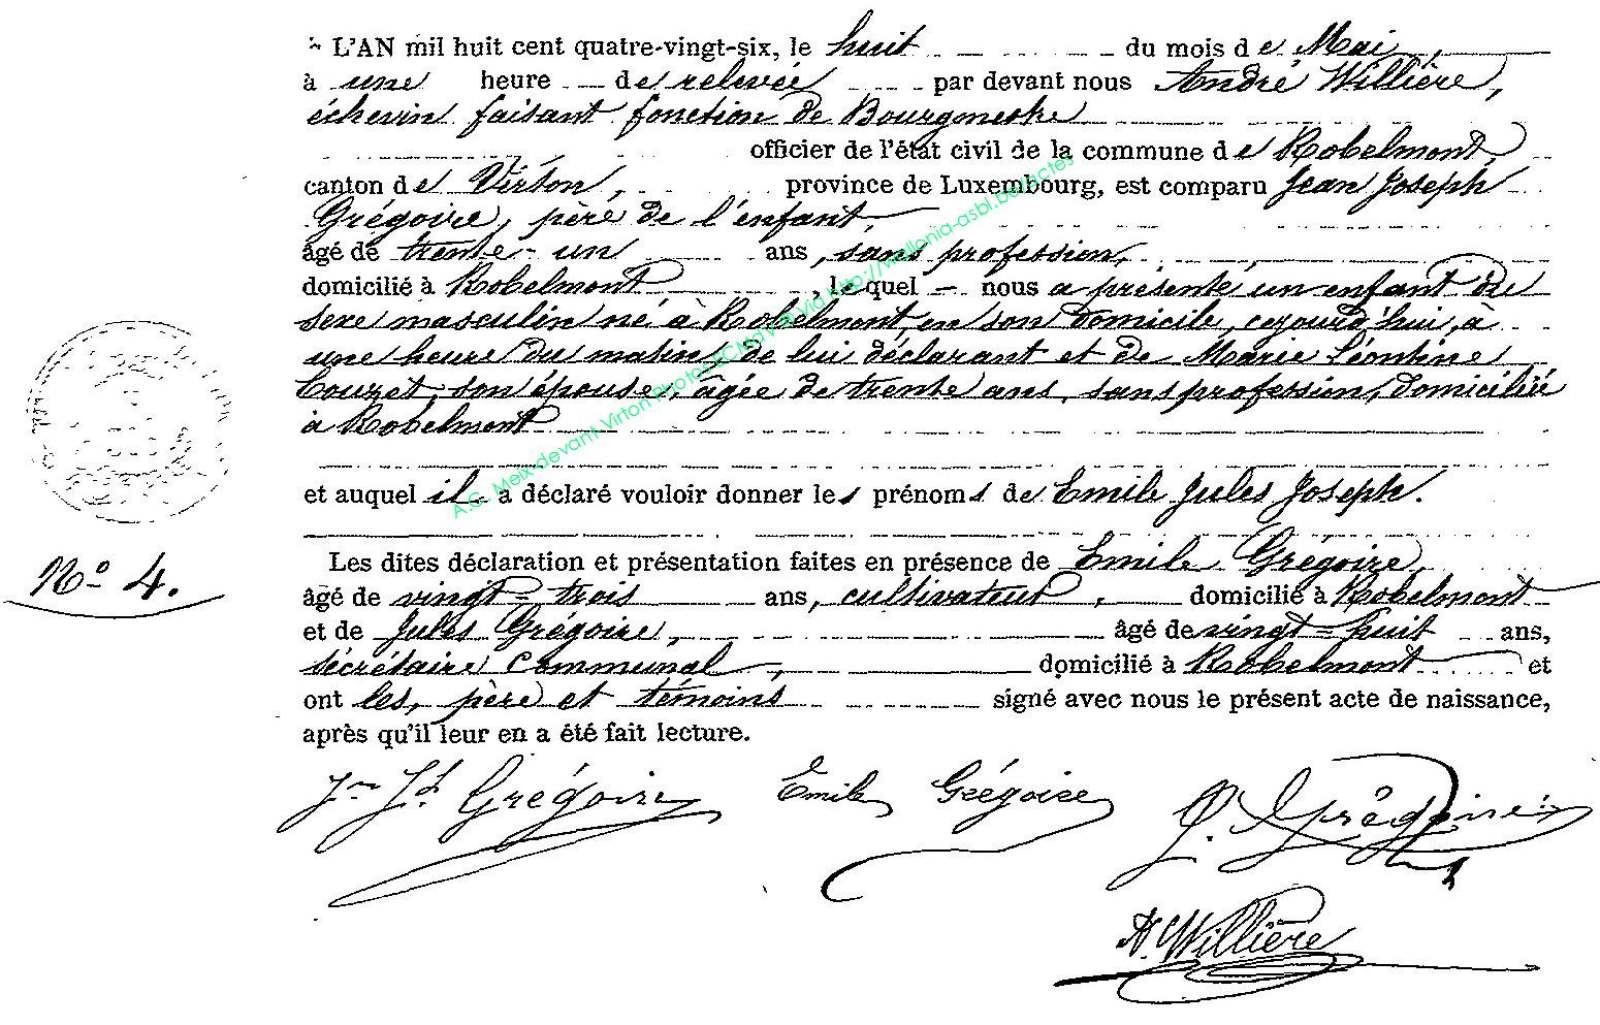 L'AN mil huit cent quatre-vingt-six, le huit du mois de Mai,
à une heure de relevée par devant nous André Willière,
échevin faisant fonction de Bourgmestre
officier de l'état civil de la commune de Robelmont,
canton de Virton, province de Luxembourg, est comparu Jean Joseph
Grégoire, père de l'enfant,
âgé de trente-un ans, sans profession,
domicilié à Robelmont, lequel nous a présenté un enfant du
sexe masculin né à Robelmont, en son domicile, cejourd'hui, à
une heure du matin, de lui déclarant et de Marie Léontine
Couzet, son épouse, âgée de trente ans, sans profession, domiciliée
à Robelmont
et auquel il a déclaré vouloir donner les prénoms de Emile Jules Joseph.
Les dites déclaration et présentation faites en présence de Emile Grégoire,
N° 4.
âgé de vingt-trois ans, cultivateur, domicilié à Robelmont
et de Jules Grégoire, âgé de vingt-huit ans,
secrétaire communal, domicilié à Robelmont et
ont les, père et témoins signé avec nous le présent acte de naissance,
après qu'il leur en a été fait lecture.
Jn Jh Grégoire Emile Grégoire J. Grégoire
A. Willière
A.C. Meix-devant-Virton Photos via http://wallonia-asbl.be/actes